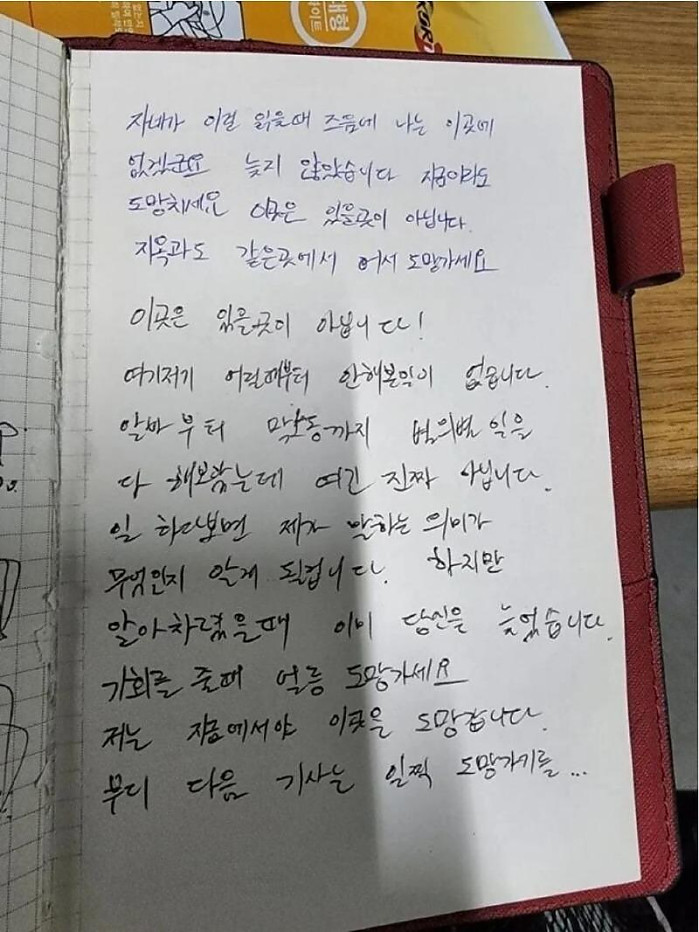 대형
라이트
자네가 이럴 읽을때 즈음에 나는 이곳에
없겠군요 늦지 않았습니다 지금이라도
도망치세요 이곳은 있을곳이 아닙니다.
지옥과도 같은곳에서 어서 도망가세요
이곳은 있을곳이 아닙니다!
여기저기 어릴때부터 안해본일이 없습니다.
알바부터 막노동까지 별의별 일을
다 해보았는데 여긴 진짜 아닙니다.
일 하다보면 제가 말하는 의미가
무엇인지 알게 될겁니다. 하지만
알아차렸을때 이미 당신은 늦었습니다.
기회를 줄때 얼릉 도망가세요
저는 지금에서야 이곳을 도망갑니다.
부디 다음 기사는 일찍 도망가기를...